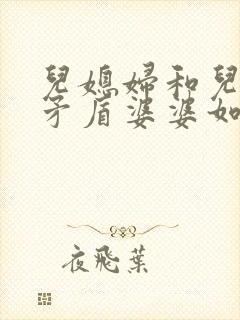 兒媳婦和兒
矛盾婆婆如
夜飛葉